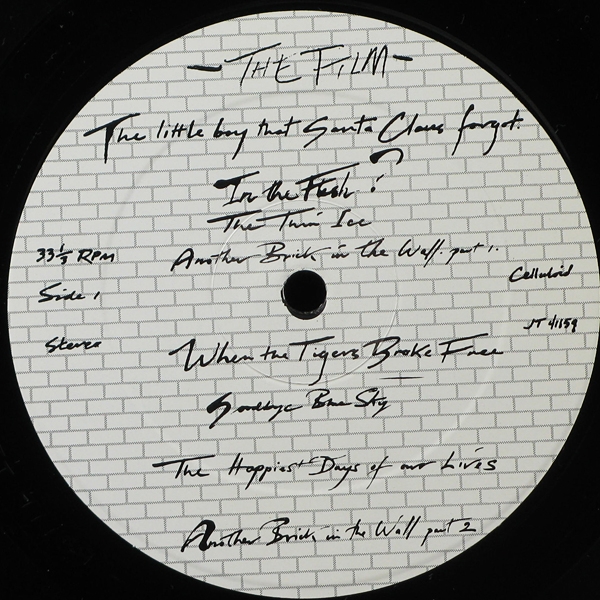 - THE FILM -
The little boy that Santa Claus forgot.
In the Flesh ?
The Thin Ice
33 1/3 RPM
Another Brick in the Wall. part 1.
Celluloid
Side 1
JT 41159
Stereo
When the Tigers Broke Free
Goodbye Blue Sky
The Happiest Days of our Lives
Another Brick in the Wall part 2